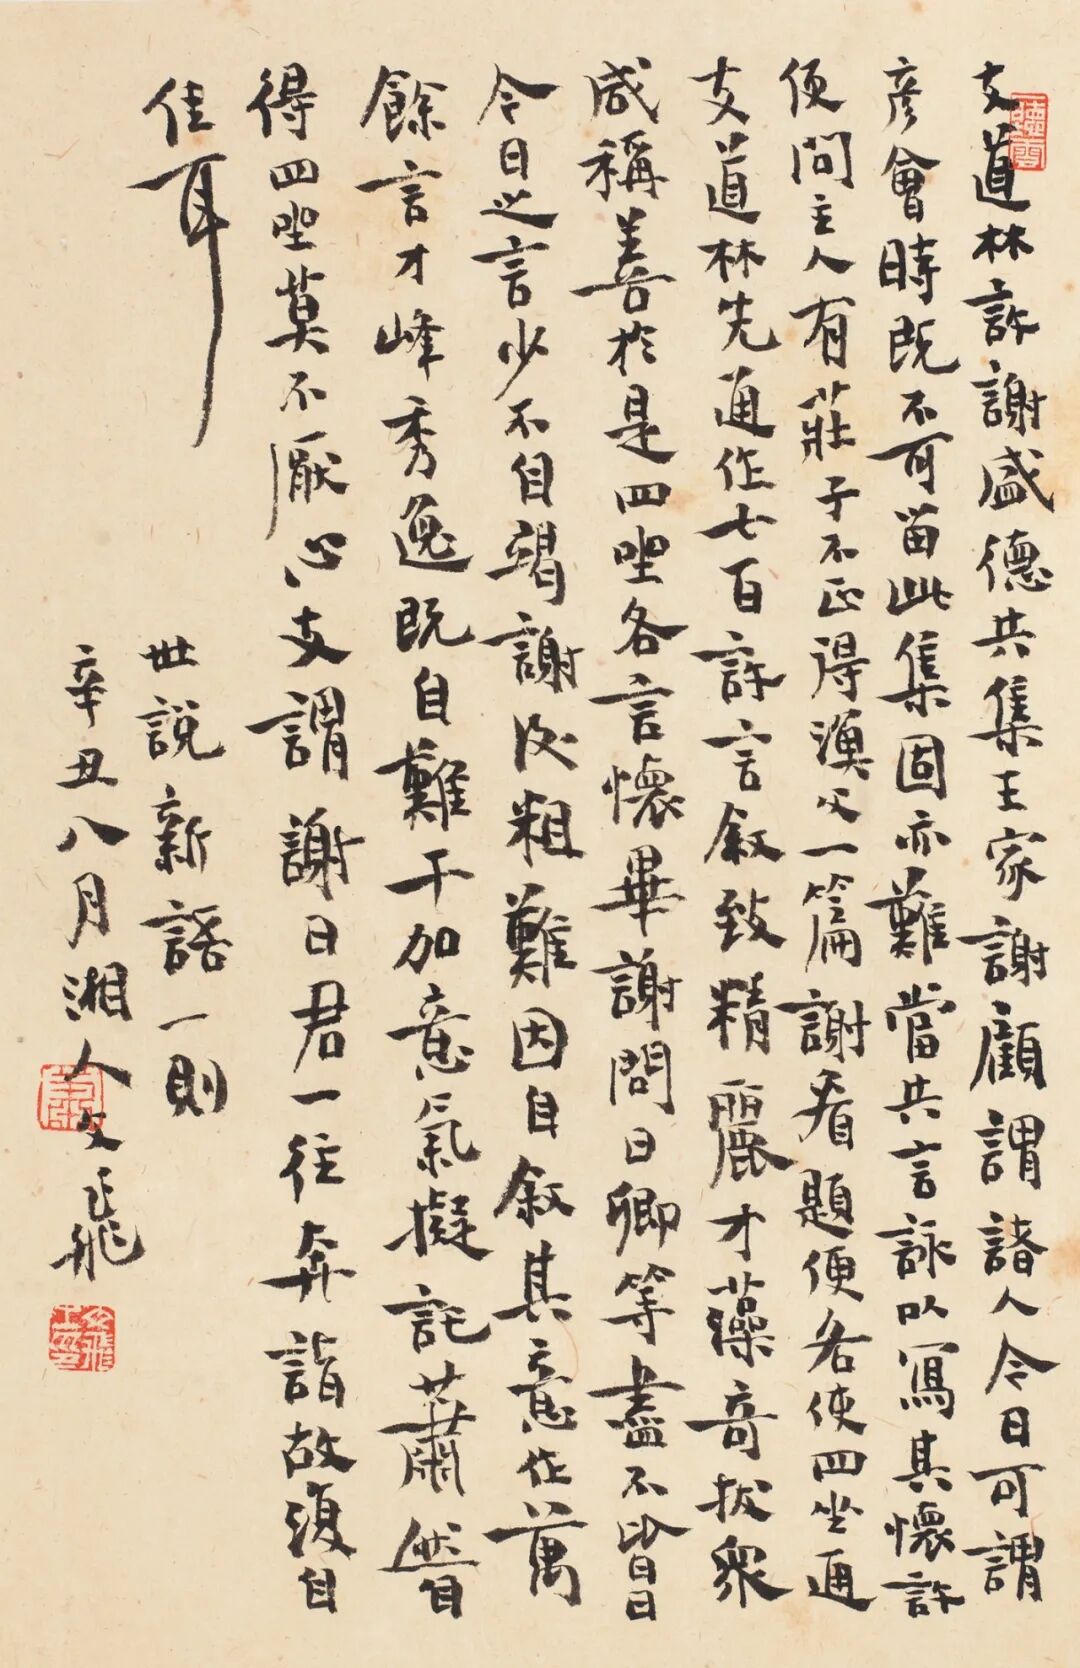 支道林許謝盛德共集王家謝顧謂諸人今日可謂
彥會時既不可留此集固亦難當共言詠以寫其懷許
便問主人有莊子不正得漁父一篇謝看題便各使四坐通
支道林先通作七百許言敘致精麗才藻奇拔眾
咸稱善於是四坐各言懷畢謝問曰卿等盡不皆曰
今日之言少不自竭謝後粗難因自敘其意作萬
餘言才峰秀逸既自難干加意氣擬託蕭然自
得四坐莫不厭心支謂謝曰君一往奔詣故復自
佳耳
世說新語一則
辛丑八月湘人文飛